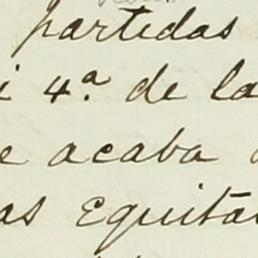 partidas
i 4ª de la
e acaba
as equita